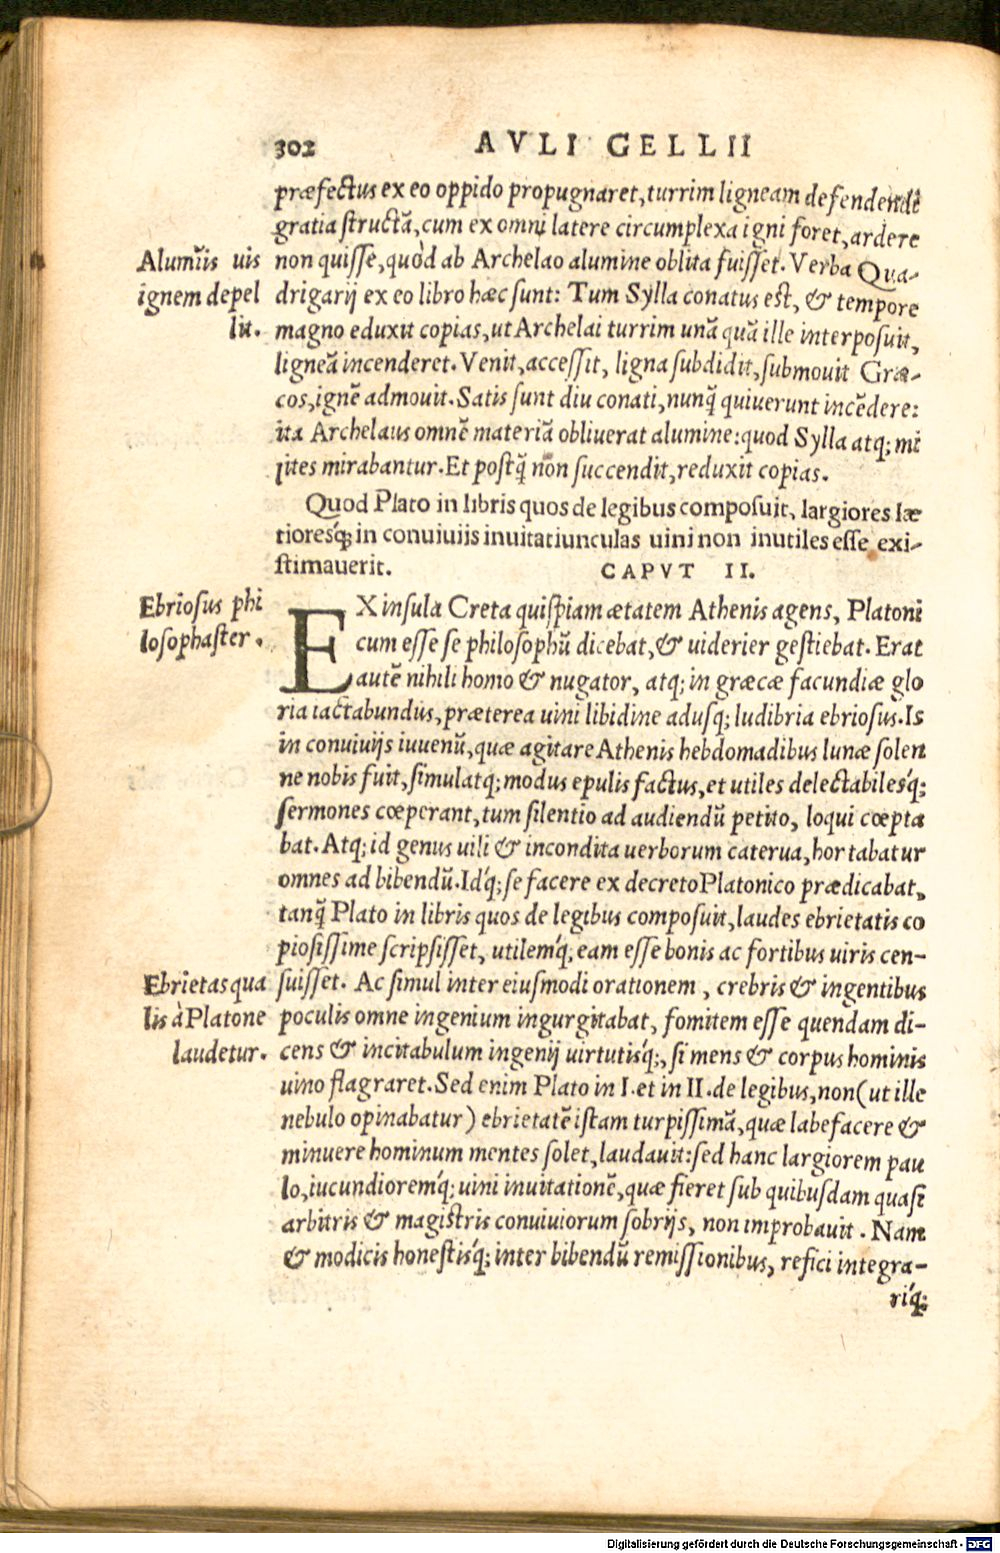 302 AVLI GELLII
præfectus ex eo oppido propugnaret, turrim ligneam defendendi
gratia structã, cum ex omni latere circumplexa igni foret, ardere
non quisse, quòd ab Archelao alumine oblita fuisset. Verba Qua-
drigarij ex eo libro hæc sunt: Tum Sylla conatus est, & tempore
magno eduxit copias, ut Archelai turrim unã quã ille interposuit,
ligneã incenderet. Venit, accessit, ligna subdidit, submouit Græ-
cos, ignẽ admouit. Satis sunt diu conati, nunq̃ quiuerunt incẽdere:
ita Archelaus omnẽ materiã obliuerat alumine: quod Sylla atq; mi
lites mirabantur. Et postq̃ non succendit, reduxit copias.
Alumĩis uis
ignem depel
lit.
Quod Plato in libris quos de legibus composuit, largiores læ
tioresq́; in conuiuiis inuitatiunculas uini non inutiles esse exi-
stimauerit. CAPVT II.
EX insula Creta quispiam ætatem Athenis agens, Platoni
cum esse se philosophũ dicebat, & uiderier gestiebat. Erat
autẽ nihili homo & nugator, atq; in græcæ facundiæ glo
ria iactabundus, præterea uini libidine adusq; ludibria ebriosus. Is
in conuiuijs iuuenũ, quæ agitare Athenis hebdomadibus lunæ solen
ne nobis fuit, simulatq; modus epulis factus, et utiles delectabilesq́;
sermones cœperant, tum silentio ad audiendũ petito, loqui cœpta
bat. Atq; id genus uili & incondita uerborum caterua, hortabatur
omnes ad bibendũ. Idq́; se facere ex decreto Platonico prædicabat,
tanq̃ Plato in libris quos de legibus composuit, laudes ebrietatis co
piosissime scripsisset, utilemq́; eam esse bonis ac fortibus uiris cen-
suisset. Ac simul inter eiusmodi orationem, crebris & ingentibus
poculis omne ingenium ingurgitabat, fomitem esse quendam di-
cens & incitabulum ingenij uirtutisq́;, si mens & corpus hominis
uino flagraret. Sed enim Plato in I. et in II. de legibus, non (ut ille
nebulo opinabatur) ebrietatẽ istam turpissimã, quæ labefacere &
minuere hominum mentes solet, laudauit: sed hanc largiorem pau
lo, iucundioremq́; uini inuitationẽ, quæ fieret sub quibusdam quasi
arbitris & magistris conuiuiorum sobrijs, non improbauit. Nam
& modicis honestisq́; inter bibendũ remissionibus, refici integra-
riq́;
Ebriosus phi
losophaster.
Ebrietas qua
lis à Platone
laudetur.
Digitalisierung gefördert durch die Deutsche Forschungsgemeinschaft - DFG